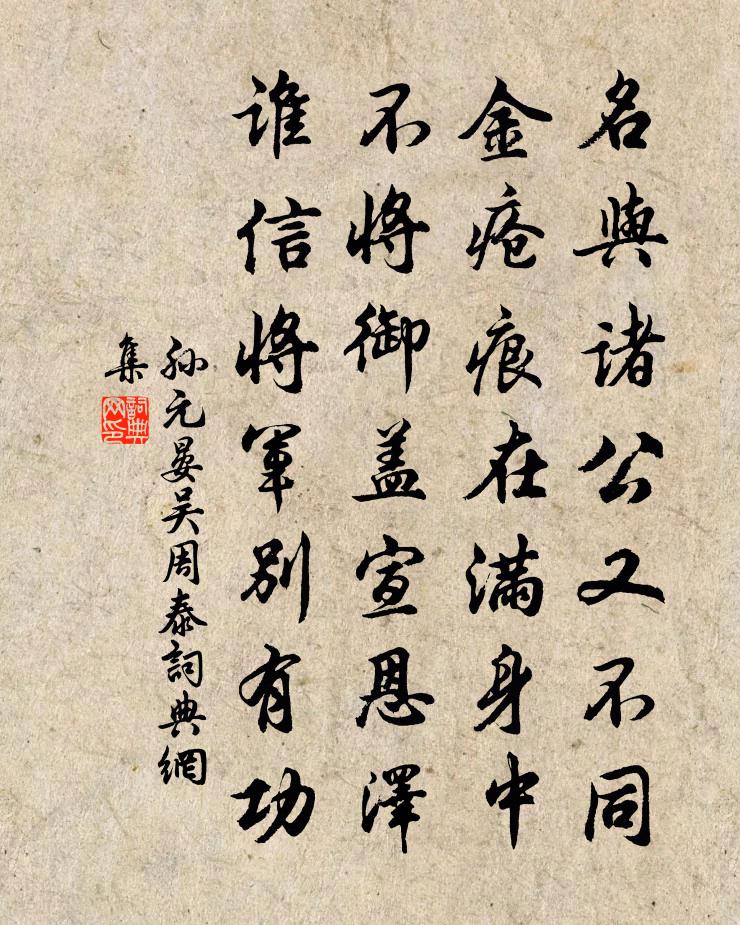 名與諸公又不同
金疮痕在滿身中
不将御盖宣恩澤
谁信将軍別有功
孙元晏吴周泰詞典網
集
詞典
网印